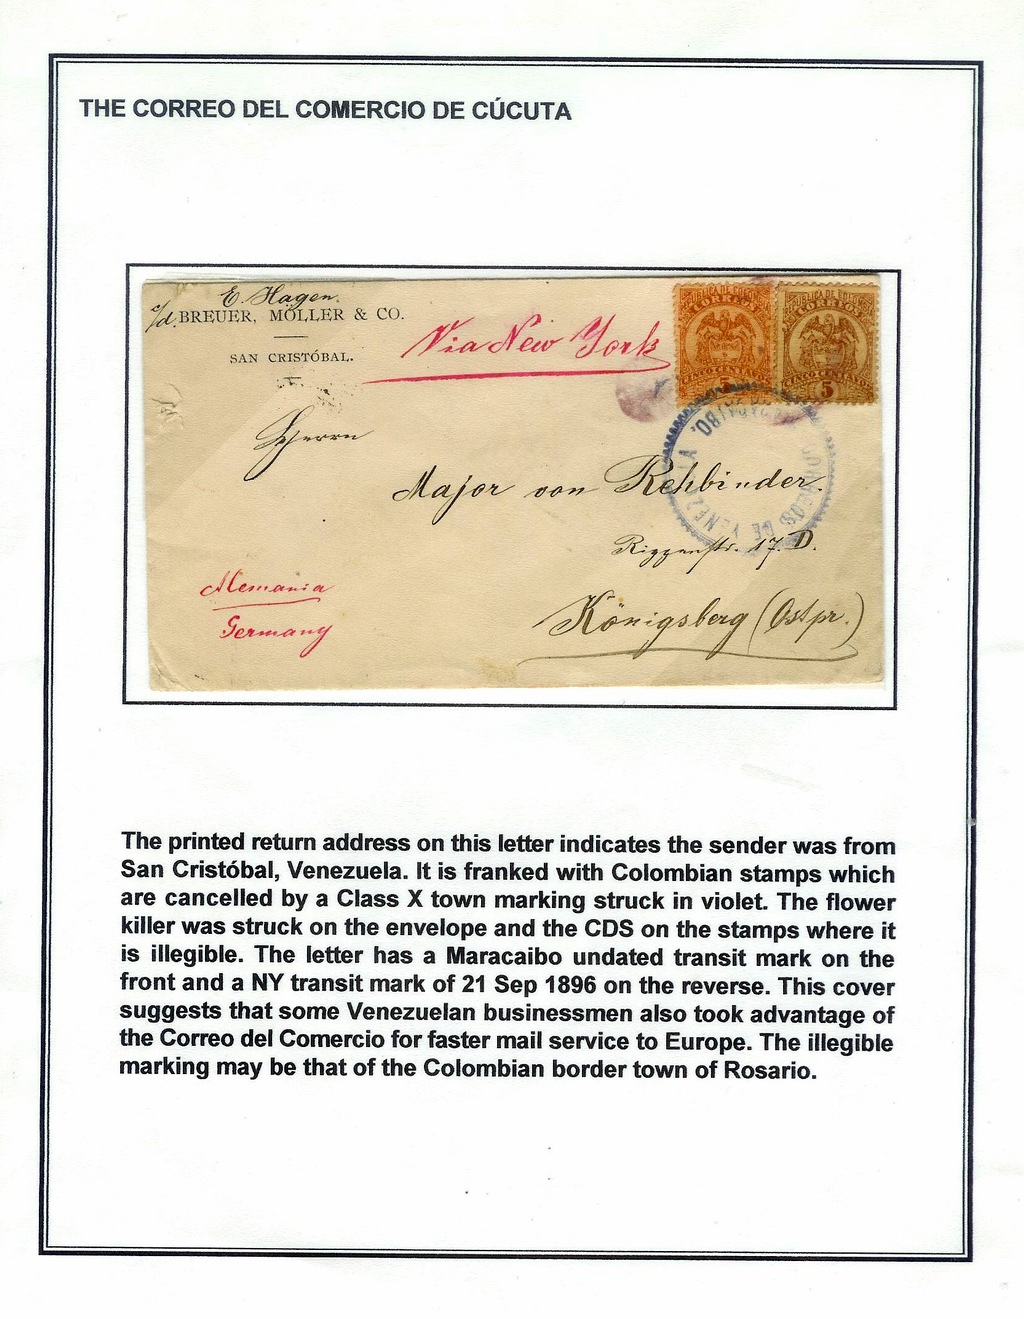 THE CORREO DEL COMERCIO DE CÚCUTA
E. Hagen.
c/d. BREUER, MÖLLER & CO.
SAN CRISTÓBAL.
Via New York
REPUBLICA DE COLOMBIA
CORREOS
CINCO CENTAVOS
5
REPUBLICA DE COLOMBIA
CORREOS
CINCO CENTAVOS
5
MARACAIBO.
CORREOS DE VENEZUELA
Herrn
Major von Rehbinder.
17. D.
Königsberg (Ostpr.)
Alemania
Germany
The printed return address on this letter indicates the sender was from
San Cristóbal, Venezuela. It is franked with Colombian stamps which
are cancelled by a Class X town marking struck in violet. The flower
killer was struck on the envelope and the CDS on the stamps where it
is illegible. The letter has a Maracaibo undated transit mark on the
front and a NY transit mark of 21 Sep 1896 on the reverse. This cover
suggests that some Venezuelan businessmen also took advantage of
the Correo del Comercio for faster mail service to Europe. The illegible
marking may be that of the Colombian border town of Rosario.